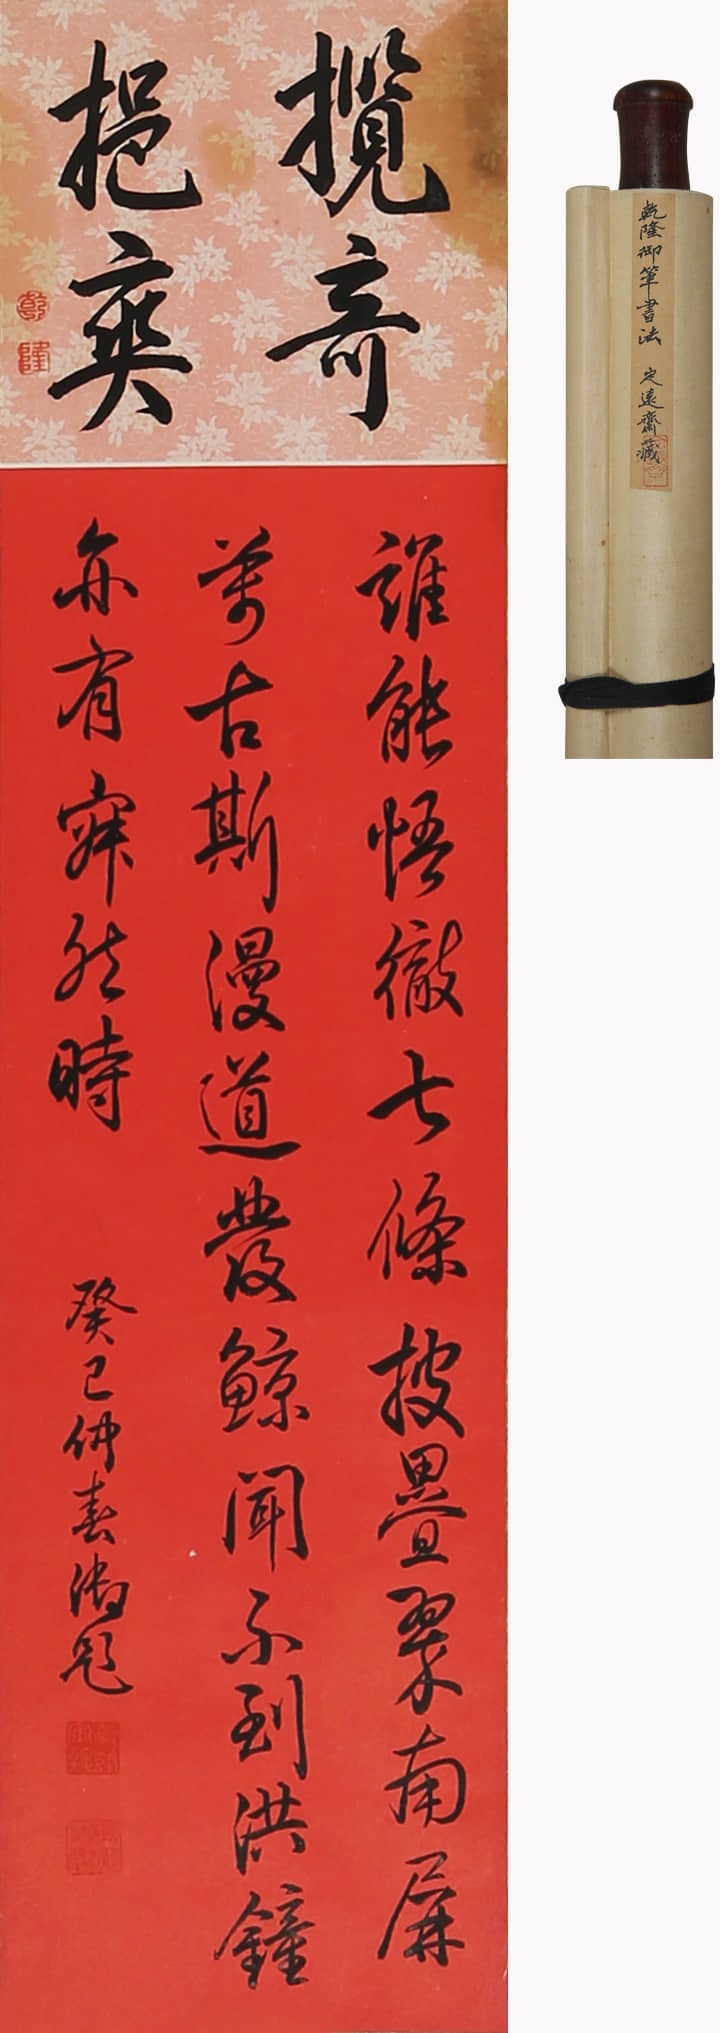 攬奇
挹爽
乾
隆
誰能悟徹七條披疊翠南屏
萬古斯漫道發鯨聞不到洪鐘
亦有寂然時
癸巳仲春御題
乾隆御筆書法 定遠齋藏